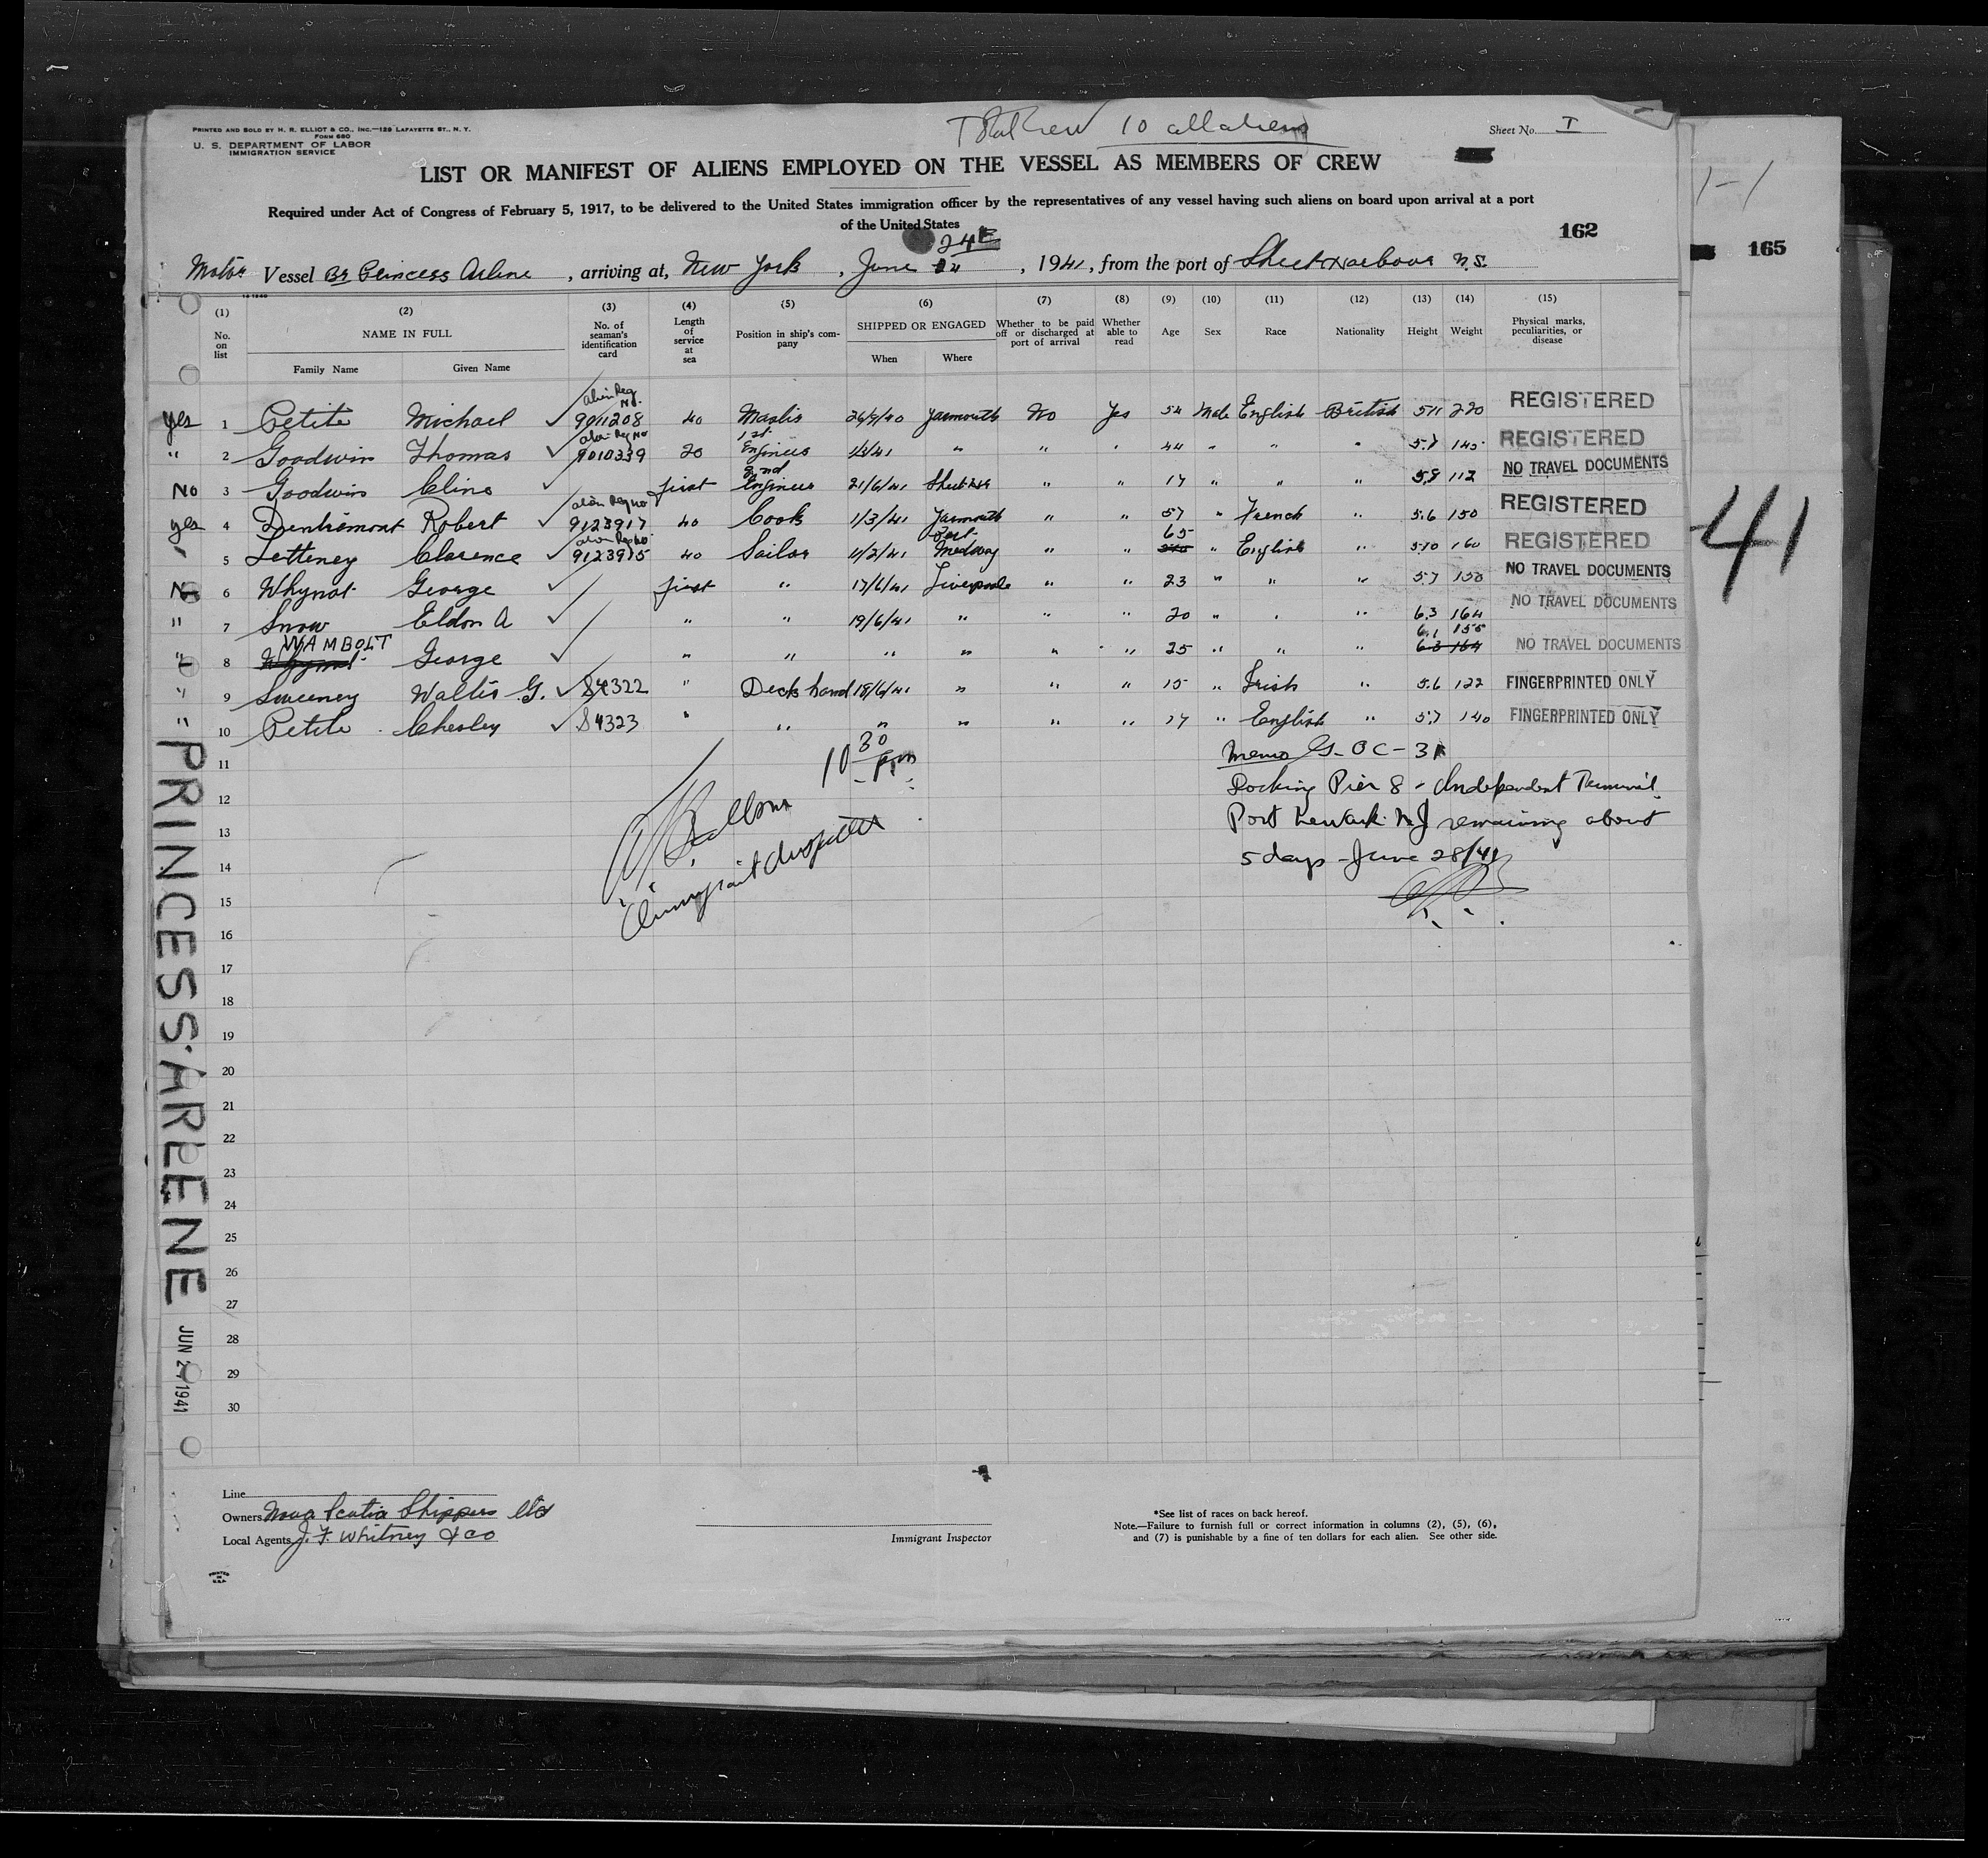 PRINTED AND SOLD BY H. R. ELLIOT & CO., INC.—129 LAFAYETTE ST., N. Y.
FORM 680
U. S. DEPARTMENT OF LABOR
IMMIGRATION SERVICE
10 all aliens
Sheet No. I
LIST OR MANIFEST OF ALIENS EMPLOYED ON THE VESSEL AS MEMBERS OF CREW
Required under Act of Congress of February 5, 1917, to be delivered to the United States immigration officer by the representatives of any vessel having such aliens on board upon arrival at a port
of the United States
162
165
24
Motor Vessel Br Princess Arline, arriving at, New York, June 24, 1941, from the port of Sheet Harbour N.S.
(1) (2) (3) (4) (5) (6) (7) (8) (9) (10) (11) (12) (13) (14) (15)
No. on list
NAME IN FULL
Family Name Given Name
No. of seaman's identification card
Length of service at sea
Position in ship's company
SHIPPED OR ENGAGED
When Where
Whether to be paid off or discharged at port of arrival
Whether able to read
Age
Sex
Race
Nationality
Height
Weight
Physical marks, peculiarities, or disease
Alien Reg No.
yes 1 Petite Michael 9011208 40 Master 26/9/40 Yarmouth No Yes 54 Male English British 5.11 220 REGISTERED
Alien Reg No 1st
" 2 Goodwin Thomas 9010339 20 Engineer " " " 44 " " " 5.7 145 REGISTERED
2nd
No 3 Goodwin Cline first Engineer 21/6/41 " " 17 " " " 5.8 112 NO TRAVEL DOCUMENTS
Alien Reg no
yes 4 Dentremont Robert 9123917 40 Cook 1/3/41 Yarmouth " " 57 " French " 5.6 150 REGISTERED
Alien Reg No. Port 65
" 5 Letteney Clarence 9123915 40 Sailor 11/2/41 Medway " " " English " 5.10 160 REGISTERED
No 6 Whynot George first " 17/6/41 Liverpool " " 23 " " " 5.7 150 NO TRAVEL DOCUMENTS
" 7 Snow Eldon A " " 19/6/41 " " " 20 " " " 6.3 164 NO TRAVEL DOCUMENTS
WAMBOLT 6.1 155
" 8 Whynot George " " " " " " 25 " " " 6.3 164 NO TRAVEL DOCUMENTS
" 9 Sweeney Wallis G. 84322 " Deck hand 18/6/41 " " " 15 " Irish " 5.6 122 FINGERPRINTED ONLY
" 10 Petite Chesley 84323 " " " " " " 17 " English " 5.7 140 FINGERPRINTED ONLY
11
12
13
14
15
16
17
18
19
20
21
22
23
24
25
26
27
28
29
30
10 30 Pm
Immigrant Inspector
Memo G-OC-31
Docking Pier 8 - Independent Terminal
Port Newark N.J remaining about
5 days - June 28/41
41
PRINCESS ARLENE
JUN 24 1941
Line
Owners Nova Scotia Shippers Ltd
Local Agents J. F. Whitney & Co
PRINTED IN U.S.A.
Immigrant Inspector
*See list of races on back hereof.
Note.—Failure to furnish full or correct information in columns (2), (5), (6),
and (7) is punishable by a fine of ten dollars for each alien. See other side.